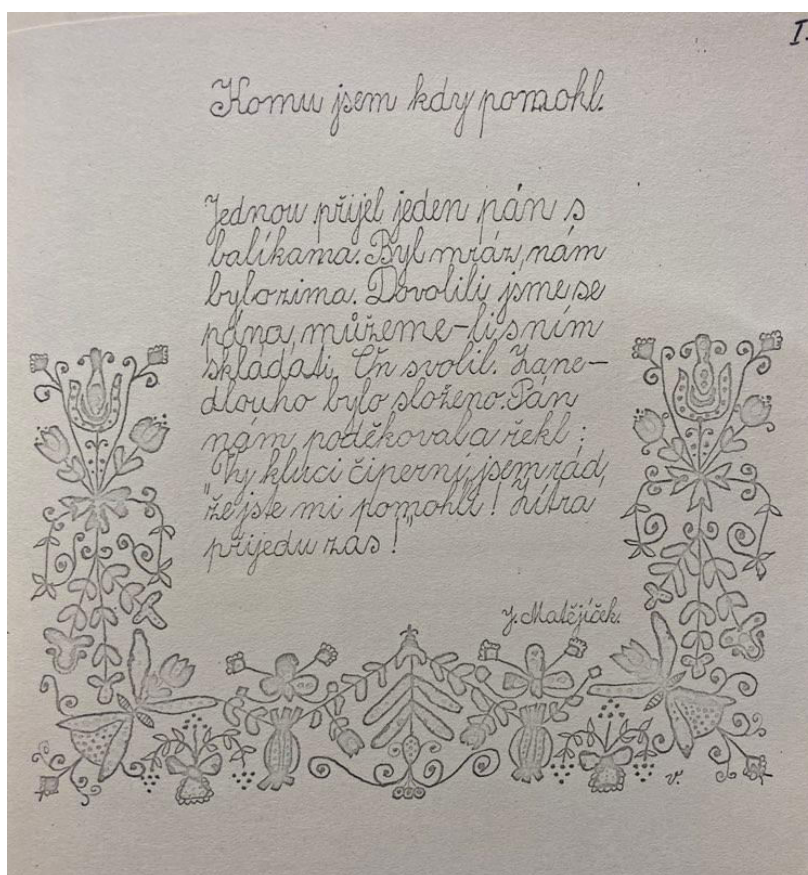 I.
Komu jsem kdy pomohl.
Jednou přijel jeden pán s
balíkama. Byl mráz, nám
bylo zima. Dovolili jsme se
pána, můžeme-li s ním
skládati. On svolil. Zane-
dlouho bylo složeno. Pán
nám poděkoval a řekl:
"Vy kluci čiperní, jsem rád,
že jste mi pomohli! Zítra
přijedu zas!"
J. Matějíček.
V.